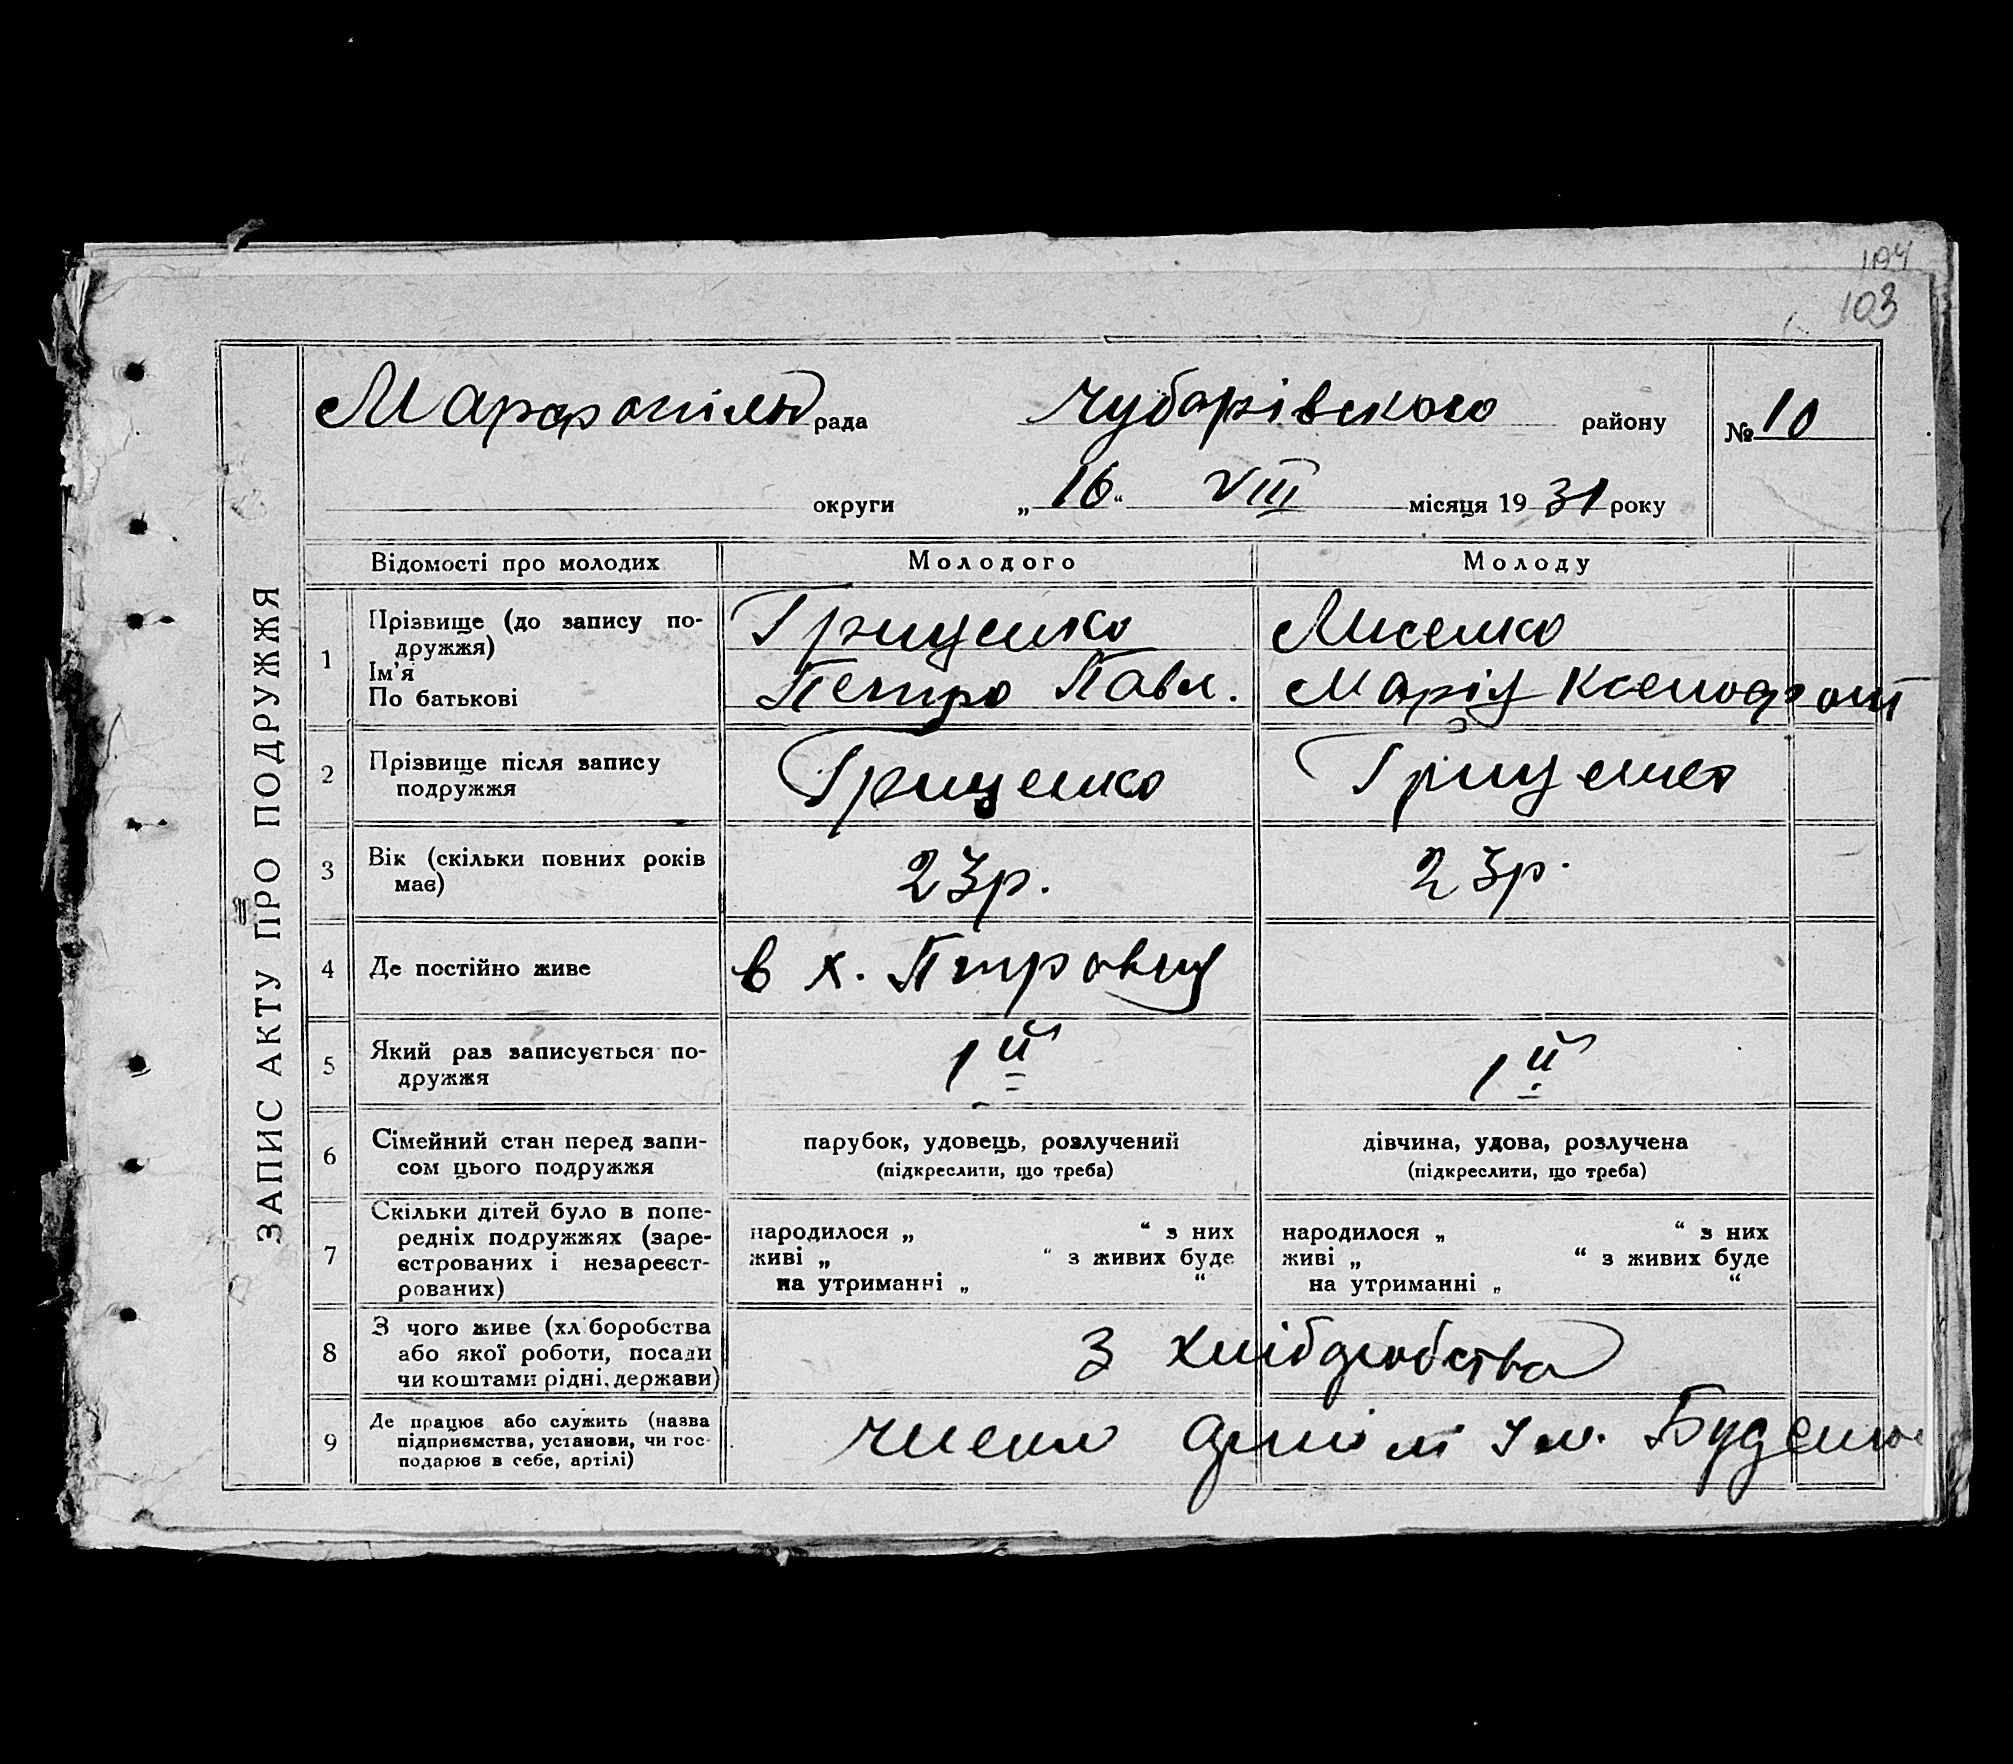 104
103
ЗАПИС АКТУ ПРО ПОДРУЖЖЯ
Марфопіль рада Чубарівского району № 10
округи „16“ VIII місяця 1931 року
Відомості про молодих Молодого Молоду
1 Прізвище (до запису по-
дружжя)
Ім’я
По батькові
Грищенко Лисенко
Петро Павл. Марія Ксенофонт
2 Прізвище після запису
подружжя
Грищенко Грищенко
3 Вік (скільки повних років
має)
23р. 23р.
4 Де постійно живе в х.
5 Який раз записується по-
дружжя
1й 1й
6 Сімейний стан перед запи-
сом цього подружжя
парубок, удовець, розлучений
(підкреслити, що треба)
дівчина, удова, розлучена
(підкреслити, що треба)
7 Скільки дітей було в попе-
редніх подружжях (заре-
єстрованих і незареєст-
рованих)
народилося „ “ з них
живі „ “ з живих буде
на утриманні „ “
народилося „ “ з них
живі „ “ з живих буде
на утриманні „ “
8 З чого живе (хліборобства
або якої роботи, посади
чи коштами рідні, держави)
З хліборобства
9 Де працює або служить (назва
підприємства, установи, чи гос-
подарює в себе, артілі)
член артілі Ім. Буденно